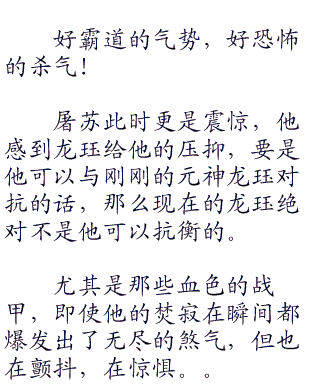 好霸道的气势，好恐怖
的杀气！
屠苏此时更是震惊，他
感到龙珏给他的压抑，要是
他可以与刚刚的元神龙珏对
抗的话，那么现在的龙珏绝
对不是他可以抗衡的。
尤其是那些血色的战
甲，即使他的焚寂在瞬间都
爆发出了无尽的煞气，但也
在颤抖，在惊惧。。